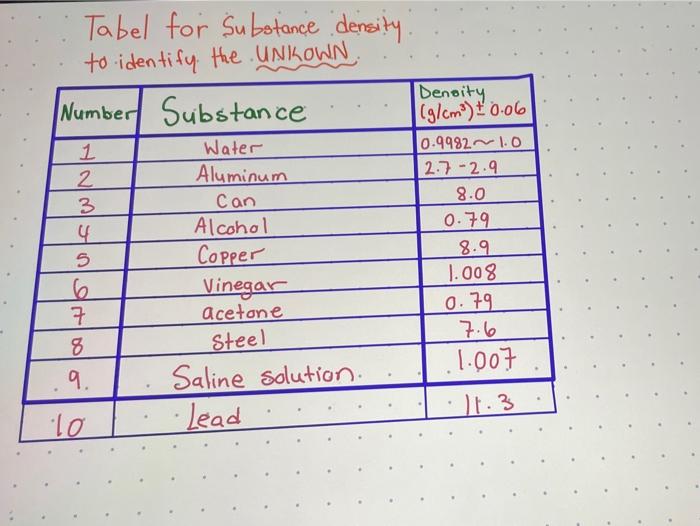 Tabel for Substance density.
to identify the UNKOWN.
Number Substance Density (g/cm³) ± 0.06
1 Water 0.9982~1.0
2 Aluminum 2.7-2.9
3 Can 8.0
4 Alcohol 0.79
5 Copper 8.9
6 Vinegar 1.008
7 acetone 0.79
8 Steel 7.6
9. Saline solution. 1.007
10 Lead 11.3